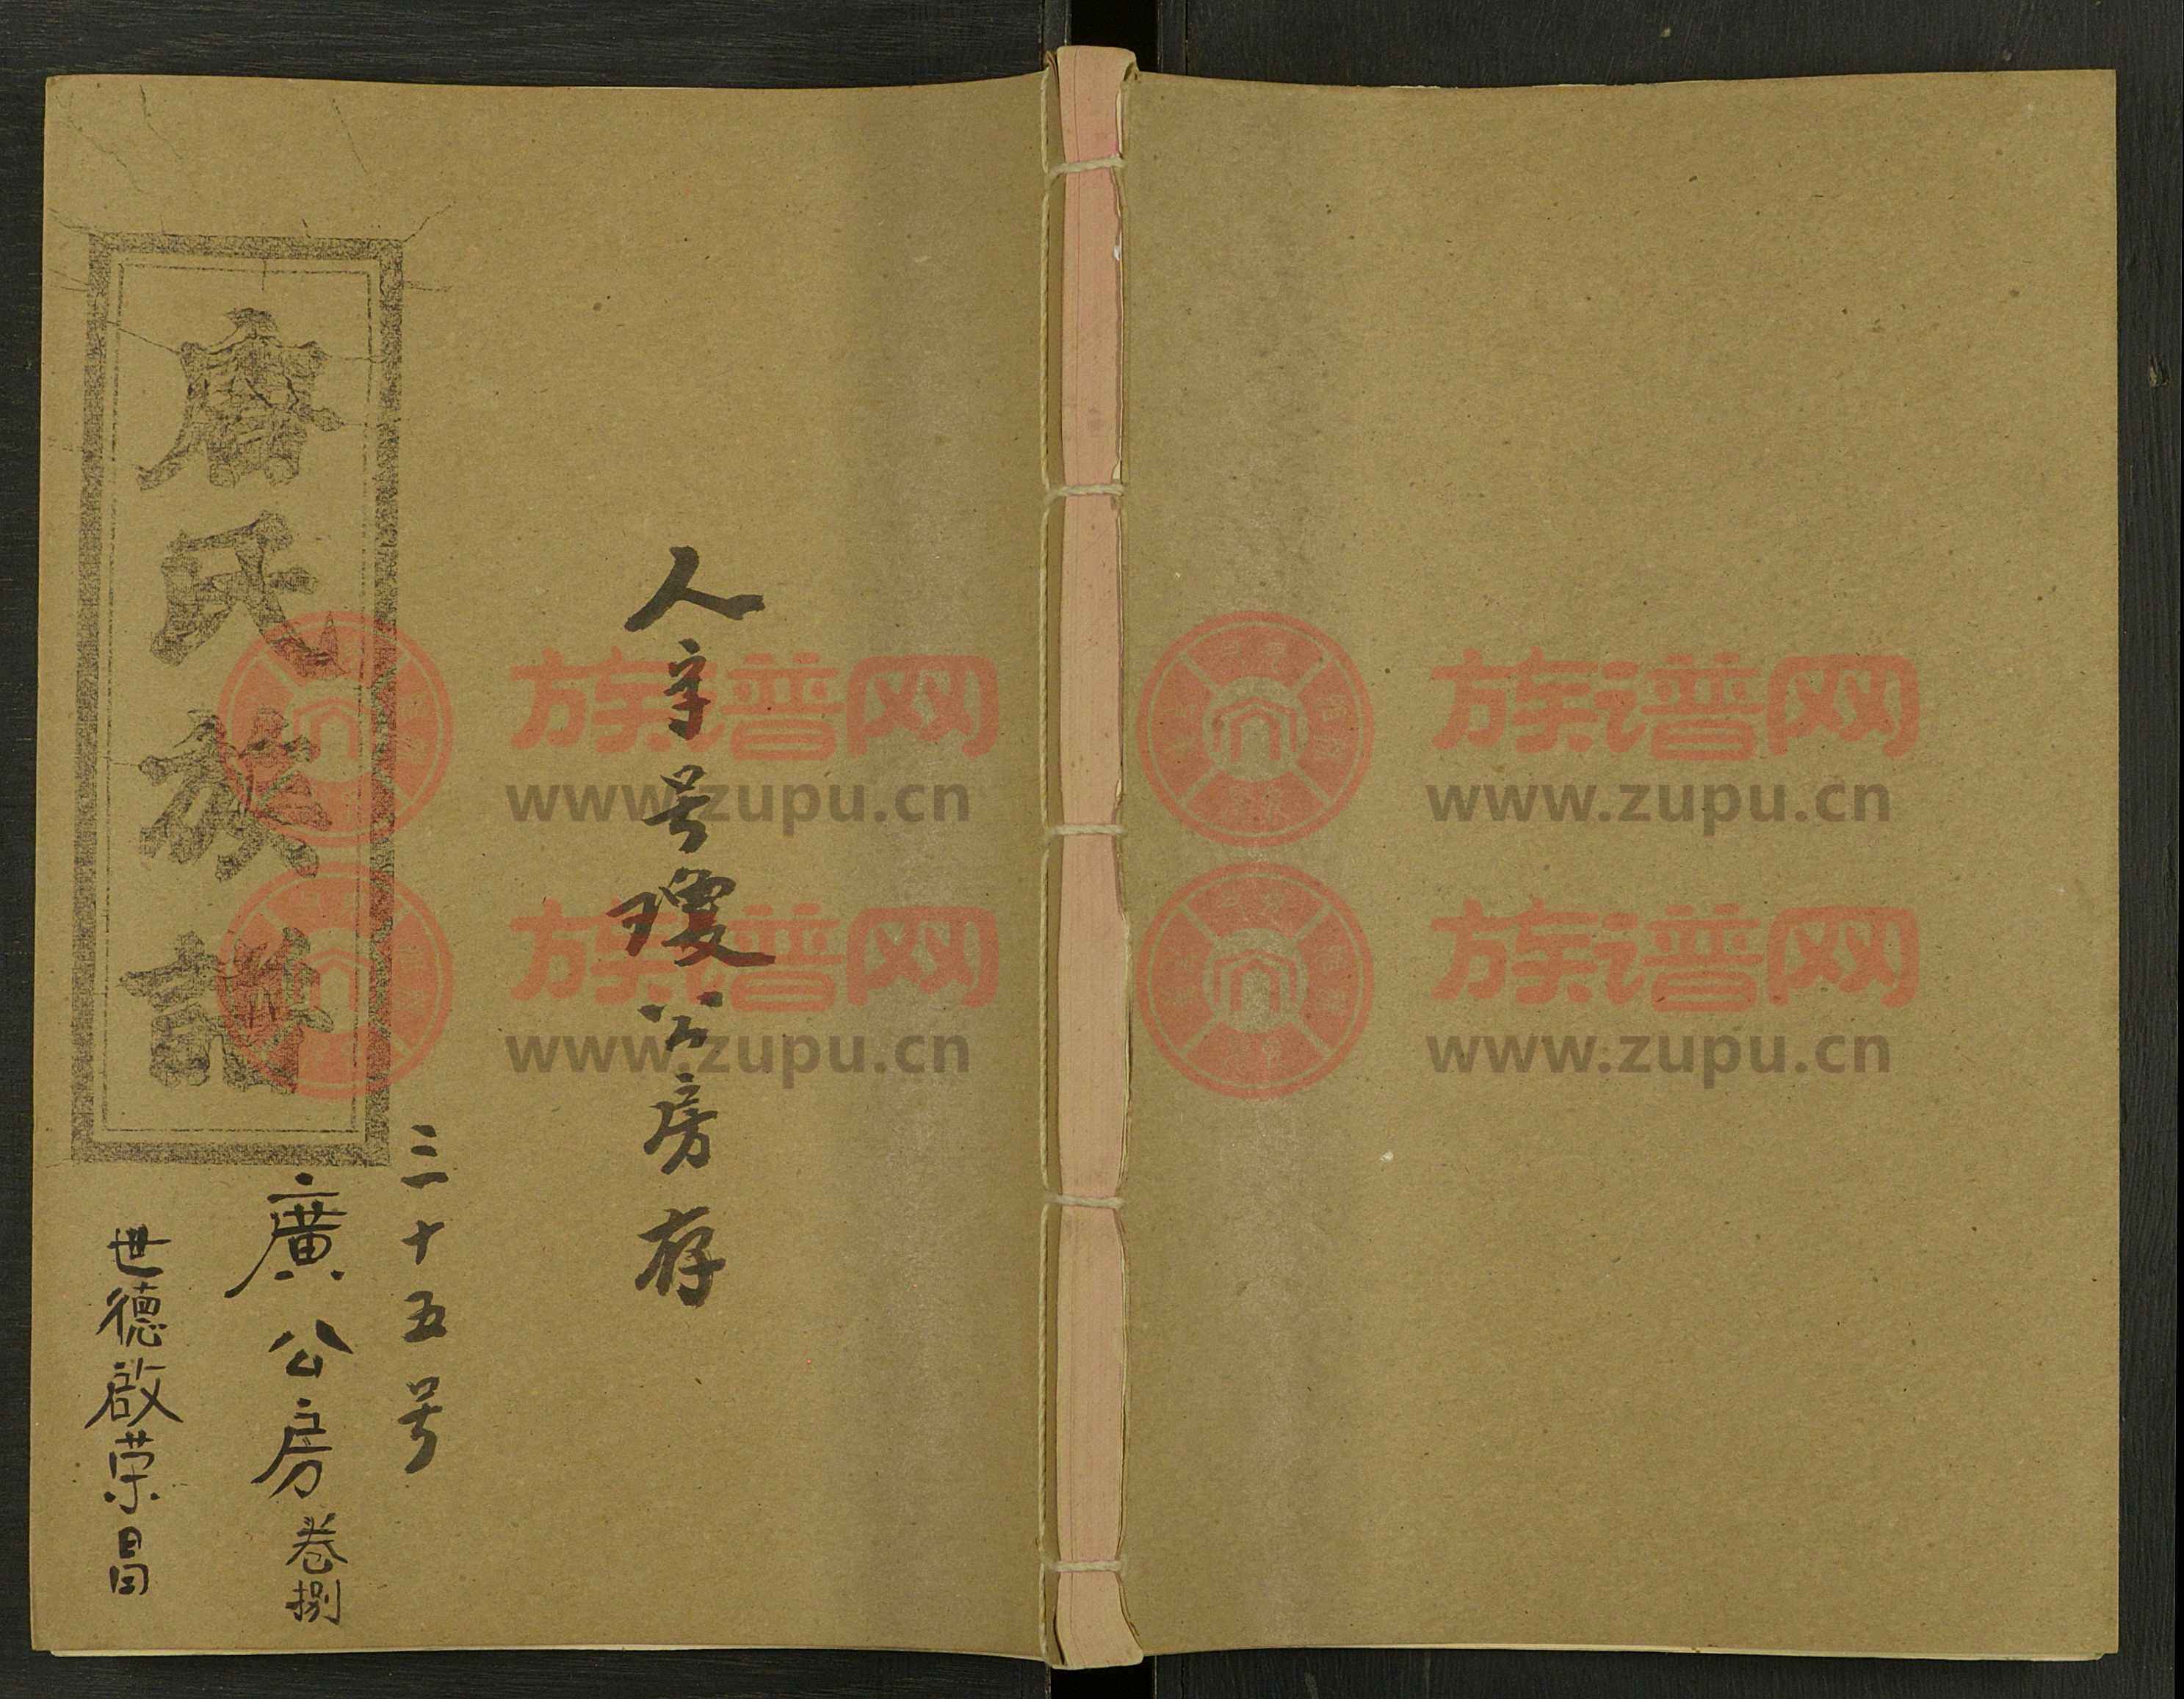 人字号瓊公房存
三十五号
唐氏族譜
廣公房卷捌
世德啟荣昌
族谱网
www.zupu.cn
族谱网
www.zupu.cn
族谱网
www.zupu.cn
族谱网
www.zupu.cn